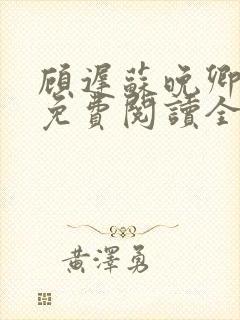 顧遲蘇晚卿
免費閱讀全
黃澤勇